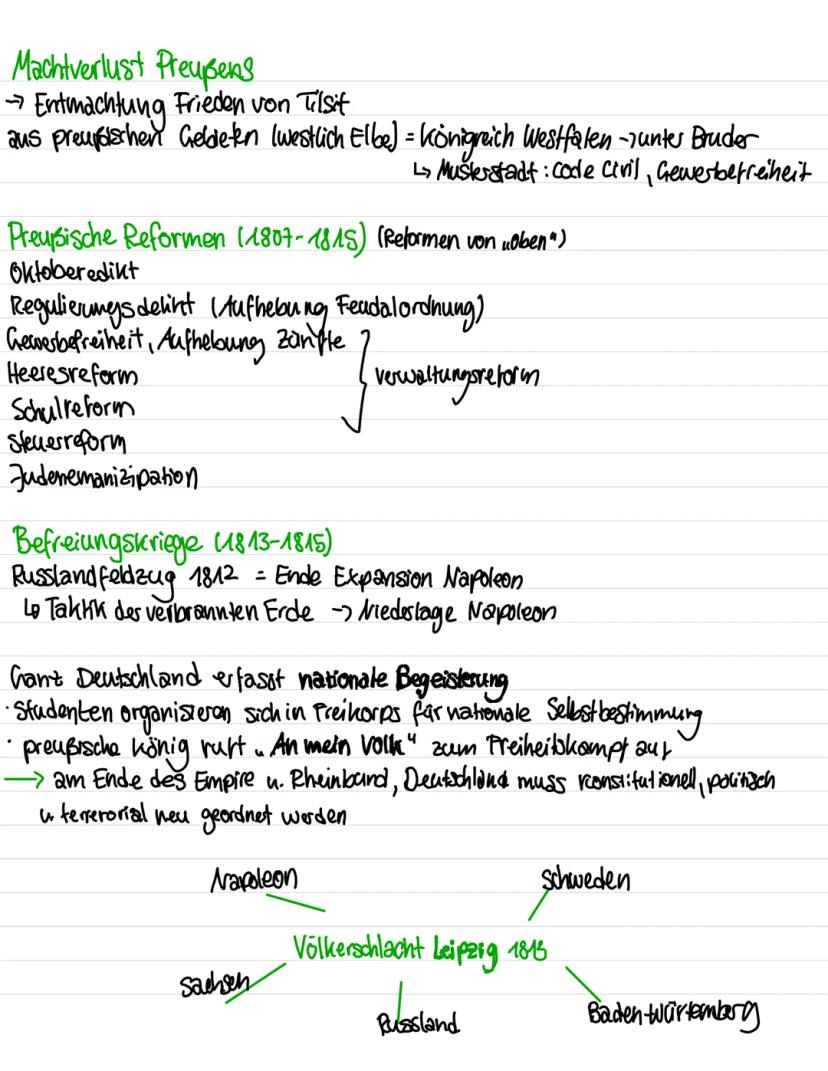 Machtverlust Preußens
→ Entmachtung Frieden von Tilsit
aus preußischen Gebieten (westlich Elbe) = Königreich Westfalen → unter Bruder
↳ Musterstadt : code Civil, Gewerbefreiheit
Preußische Reformen (1807-1815) (Reformen von „oben")
Oktoberedikt
Regulierungsdekirt (Aufhebung Feudalordnung)
Gewerbefreiheit, Aufhebung Zünfte
Heeresreform
verwaltungsreform
Schulreform
Steuerreform
Judenemanizipation
Befreiungskriege (1813-1815)
Russlandfeldzug 1812 = Ende Expansion Napoleon
↳ Taktik des verbrannten Erde → Niederlage Napoleon
Ganz Deutschland erfasst nationale Begeisterung
· Studenten organisieren sich in Freikorps für nationale Selbstbestimmung
· preußische König ruft „An mein Volk" zum Freiheitskampf auf
→ am Ende des Empire u. Rheinbund, Deutschland muss konstitutionell, politisch
u terrerorial neu geordnet werden
Napoleon
Schweden
Völkerschlacht Leipzig 1813
Sachsen
Russland
Baden-Würtemberg